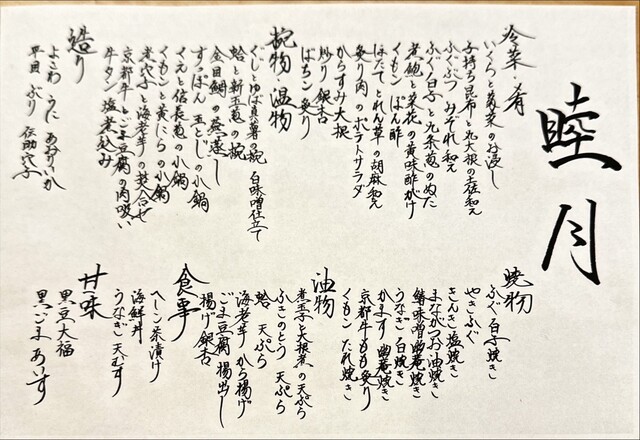 睦月
冷菜・肴
いくらと菊菜のお浸し
子持ち昆布と丸大根の土佐和え
ふぐぶつ みぞれ和え
ふぐ白子と九条葱のぬた
煮鮑と菜花の黄味酢がけ
くもこ ぽん酢
ほたてとれん草の胡麻和え
炙り肉のポテトサラダ
からすみ大根
炒り銀杏
ばちこ炙り
椀物 温物
ぐじとゆば真薯の椀 白味噌仕立て
蛤と新玉葱の椀
金目鯛の蕪蒸し
すっぽん玉とじの小鍋
くえと信長葱の小鍋
くもこと黄にらの小鍋
煮穴子と海老芋の炊合せ
京都牛とごま豆腐の肉吸い
牛タン塩煮込み
造り
よこわ うに あおりいか
平目 ぶり 伝助穴子
焼物
ふぐ白子焼き
やきふぐ
さんき塩焼き
まながつお油焼き
鰆味噌幽庵焼き
うなぎ白焼き
かます 幽庵焼き
京都牛もも炙り
くもこたれ焼き
油物
煮玉子と大根菜の天ぷら
ふきのとう 天ぷら
蛤 天ぷら
海老芋 から揚げ
ごま豆腐 揚出し
揚げ銀杏
食事
へしこ茶漬け
海鮮丼
うなぎ天むす
甘味
黒豆大福
黒ごまあいす